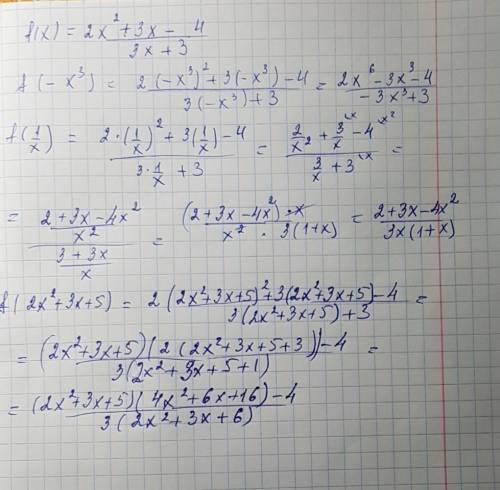 f(x) = (2x² + 3x - 4)/(3x + 3)
f(-x³) = (2(-x³)² + 3(-x³) - 4)/(3(-x³) + 3) = (2x⁶ - 3x³ - 4)/(-3x³ + 3)
f(1/x) = (2·(1/x)² + 3(1/x) - 4)/(3·1/x + 3) = (2/x² + 3/x^{\x} - 4^{\x²})/(3/x + 3^{\x}) =
= ((2 + 3x - 4x²)/x²)/((3 + 3x)/x) = ((2 + 3x - 4x²)·x)/(x² · 3(1+x)) = (2 + 3x - 4x²)/(3x(1+x))
f(2x² + 3x + 5) = (2(2x² + 3x + 5)² + 3(2x² + 3x + 5) - 4)/(3(2x² + 3x + 5) + 3) =
= ((2x² + 3x + 5)(2(2x² + 3x + 5 + 3)) - 4)/(3(2x² + 3x + 5 + 1)) =
= ((2x² + 3x + 5)(4x² + 6x + 16) - 4)/(3(2x² + 3x + 6)